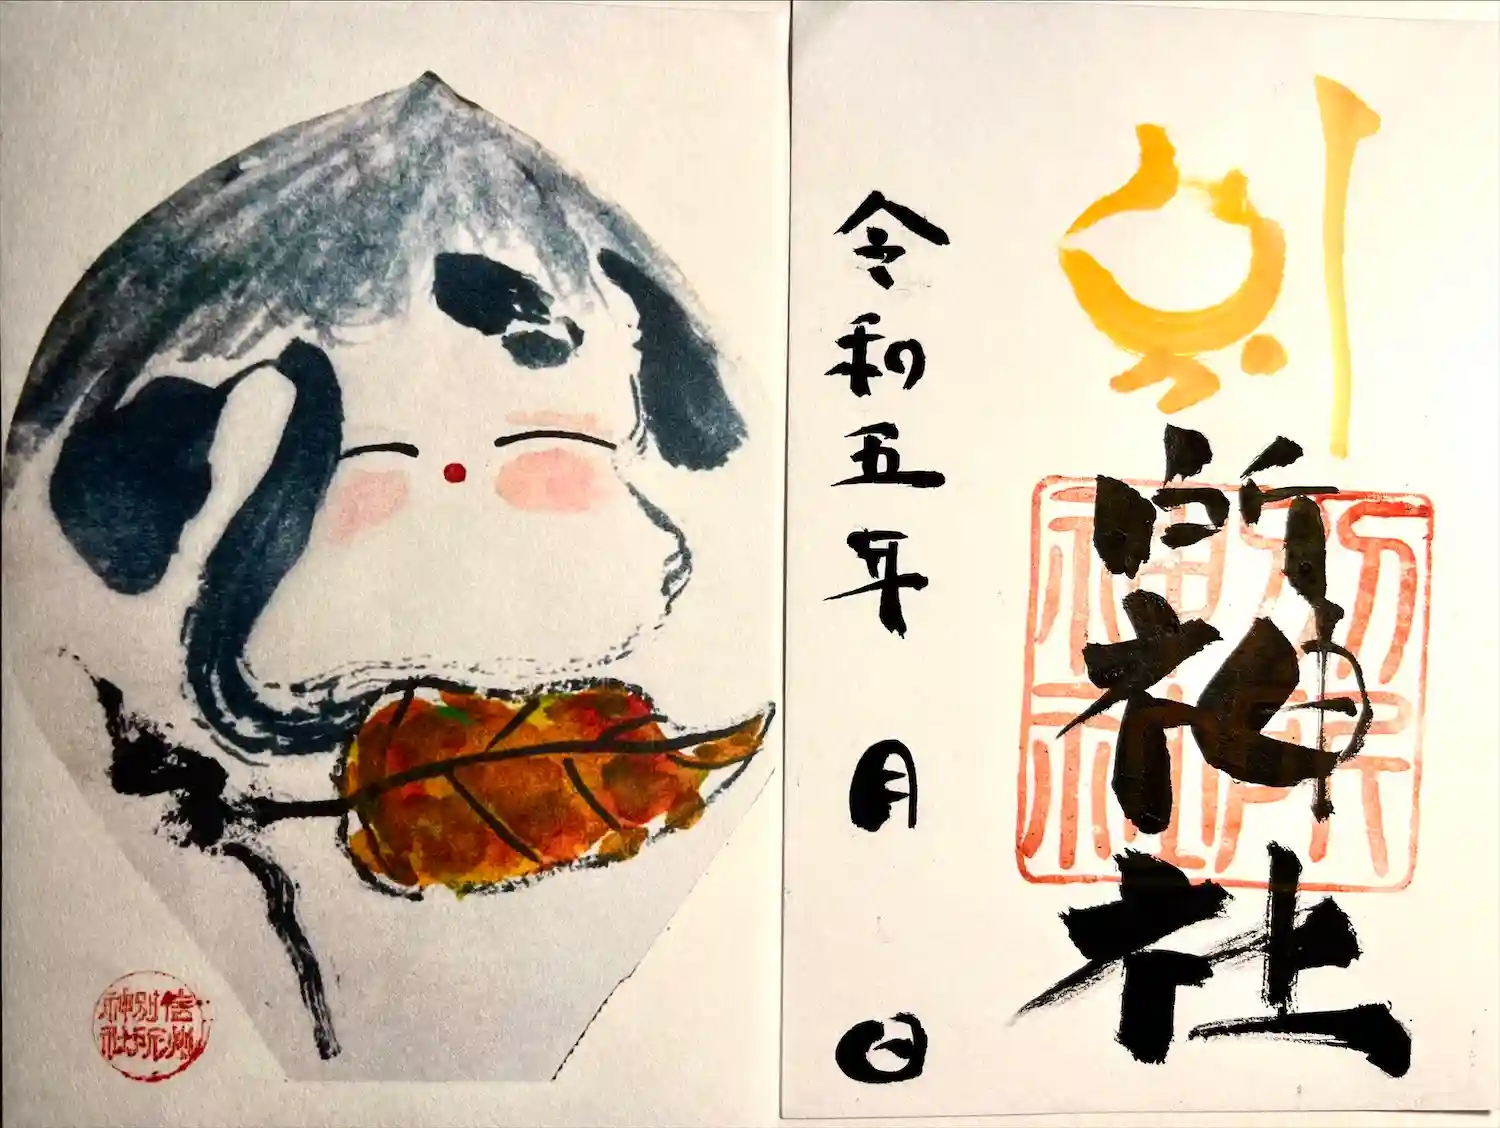 別所神社
別所
神社
令和五年 月 日
信州
別所
神社